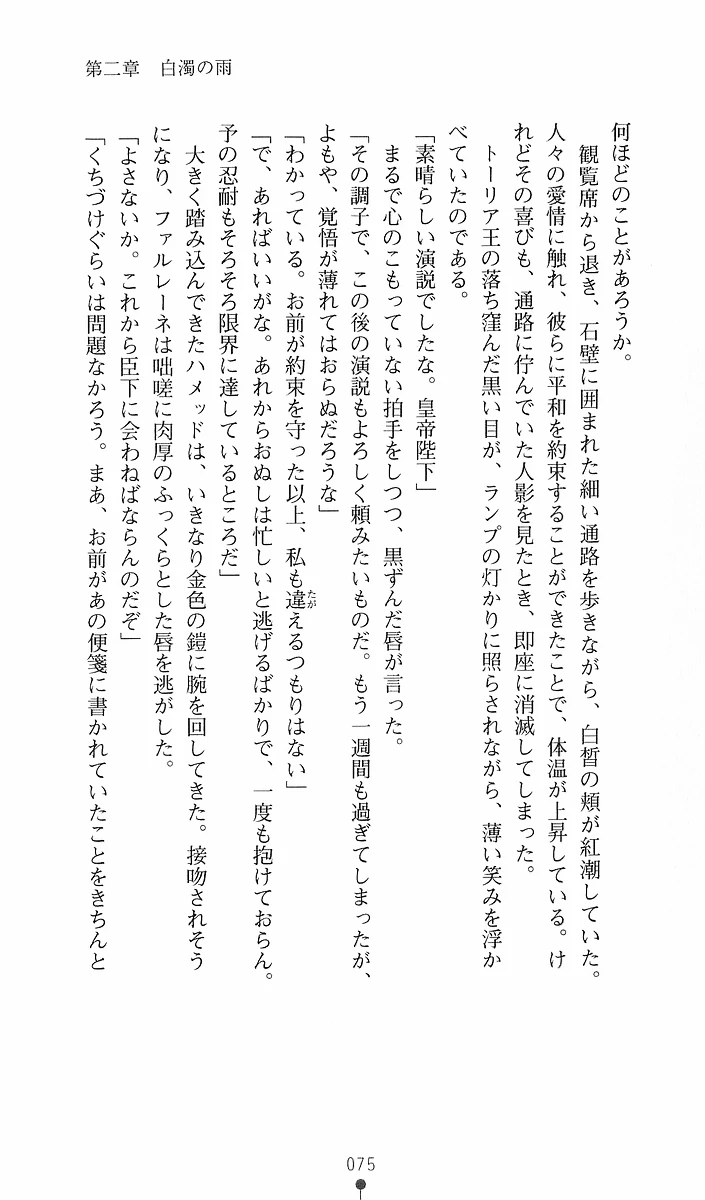 第二章　白濁の雨
何ほどのことがあろうか。
　観覧席から退き、石壁に囲まれた細い通路を歩きながら、白皙の頬が紅潮していた。
人々の愛情に触れ、彼らに平和を約束することができたことで、体温が上昇している。け
れどその喜びも、通路に佇んでいた人影を見たとき、即座に消滅してしまった。
　トーリア王の落ち窪んだ黒い目が、ランプの灯かりに照らされながら、薄い笑みを浮か
べていたのである。
「素晴らしい演説でしたな。皇帝陛下」
　まるで心のこもっていない拍手をしつつ、黒ずんだ唇が言った。
「その調子で、この後の演説もよろしく頼みたいものだ。もう一週間も過ぎてしまったが、
よもや、覚悟が薄れてはおらぬだろうな」
「わかっている。お前が約束を守った以上、私も違たがえるつもりはない」
「で、あればいいがな。あれからおぬしは忙しいと逃げるばかりで、一度も抱けておらん。
予の忍耐もそろそろ限界に達しているところだ」
　大きく踏み込んできたハメッドは、いきなり金色の鎧に腕を回してきた。接吻されそう
になり、ファルレーネは咄嗟に肉厚のふっくらとした唇を逃がした。
「よさないか。これから臣下に会わねばならんのだぞ」
「くちづけぐらいは問題なかろう。まあ、お前があの便箋に書かれていたことをきちんと
075